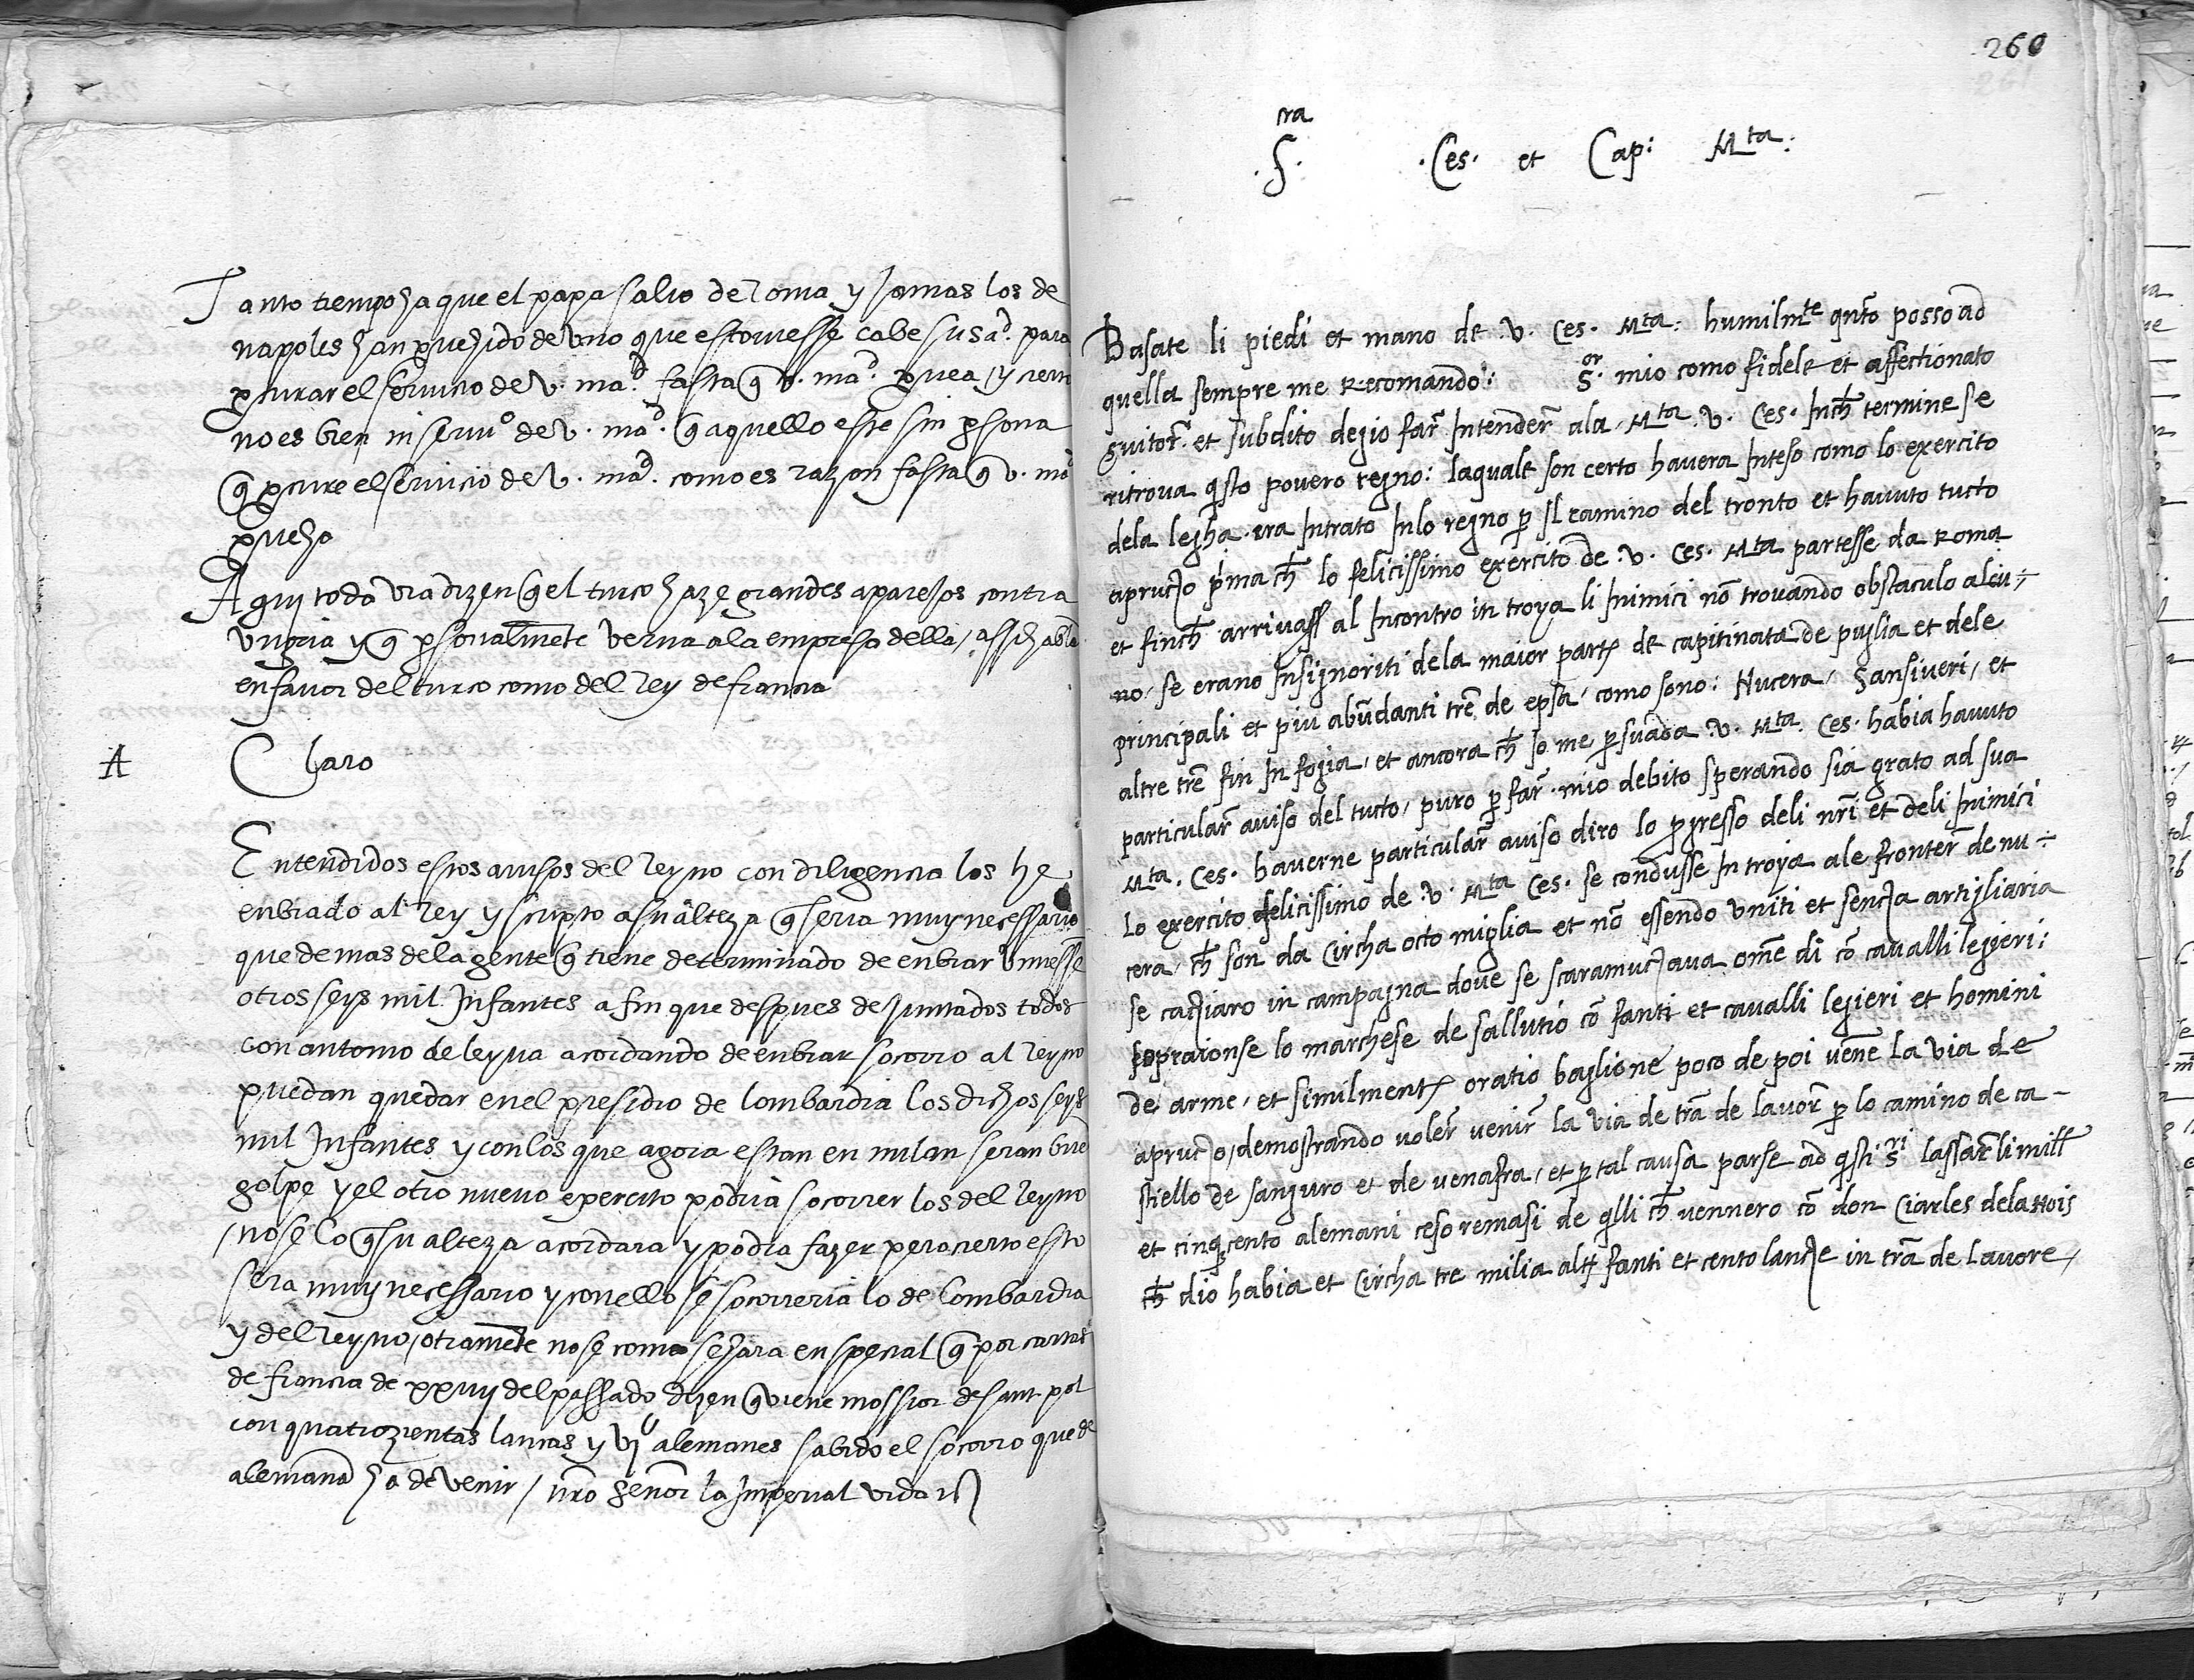 Tanto tiempo ha que el papa salio de Roma y Jamas los de
napoles han prouehido de vno que estouiesse cabe su s.d para
procurar el seruicio de v. mad. fasta q v. mad. prouea / y cierto
no es bien ni seruo de v. mad. q aquello este sin psona
q procure el seruicio de v. mad. como es razon fasta q v. mad
proueha
Aqui toda via dizen q el turco haze grandes aparejos contra
vngria y q psonalmẽte verna ala empresa della / assi habla
en fauor del turco como del rey de francia
A Claro
Entendidos estos auisos del Reyno con diligencia los he
enbiado al rey y scripto a su alteza q seria muy necessario
que demas dela gente q tiene determinado de enbiar vniesse
otros seys mil Infantes a fin que despues de Juntados todos
con antonio de leyua acordando de enbiar socorro al Reyno
puedan quedar en el presidio de lombardia los dichos seys
mil Infantes y con los que agora estan en milan seran buẽ
golpe y el otro nueuo exercito podria socorrer los del Reyno
/ no se lo q su alteza acordara y podra fazer pero cierto esto
sera muy necessario y conello se socorreria lo de lombardia
y del Reyno / otramẽte no se como se hara en special q por cartas
de francia de xxviij del passado dizen q viene mossior de sant pol
con quatrozientas lanças y vjU alemanes sabido el socorro que de
alemana ha de venir / nro senor la Imperial vida rs
260
261
.S.ra .Ces. et Cap: Mta:
Basate li piedi et mano de .v. Ces. Mta: humilmte qnto posso ad
quella sempre me Recomando: S.or mio como fidele et affectionato
Suitor. et subdito degio far Intender ala .Mta .v. Ces. In ch termine se
ritroua qsto pouero regno: laquale son certo hauera Inteso como lo exercito
dela legha era Intrato In lo regno p Il camino del tronto et hauuto tucto
aprutzo pima ch lo felicissimo exercito de .v. Ces. Mta partesse da Roma
et finch arriuass al Incontro in troya li Inimici nõ trouando obstaculo alcu-
no / se erano Insignoriti dela maior parte de capitinata de puglia et dele
principali et piu abũdanti tre de epsa / como sono: Nucera / Sansiueri / et
altre tre fin In fogia / et ancora ch Io me psuada .v. Mta. Ces. habia hauuto
particular auiso del tucto / puro p far mio debito sperando sia grato ad sua
Mta. Ces. hauerne particular auiso diro lo pgresso deli nri et deli Inimici
Lo exercito felicissimo de .v. Mta Ces. se condusse In troya ale fronter de nu-
cera / ch son da Circha octo miglia et nõ essendo vniti et sencza artigliaria
se cacziaro in campagna doue se scaramuczaua omẽ di cõ caualli legieri:
sopraionse lo marchese de sallutio cõ fanti et caualli legieri et homini
de arme / et similmente oratio baglione poco de poi venẽ la via de
aprutzo / demostrando voler venir la via de tra de lauor p lo camino de ca-
stiello de sanguro et de venafra / et p tal causa parse ad qsti S.ri lassar li mill
et cinqcento alemani ceso remasi de qlli ch vennero cõ don Ciarles delanois
ch dio habia et Circha tre milia altr fanti et cento lanze in tra de Lauore /